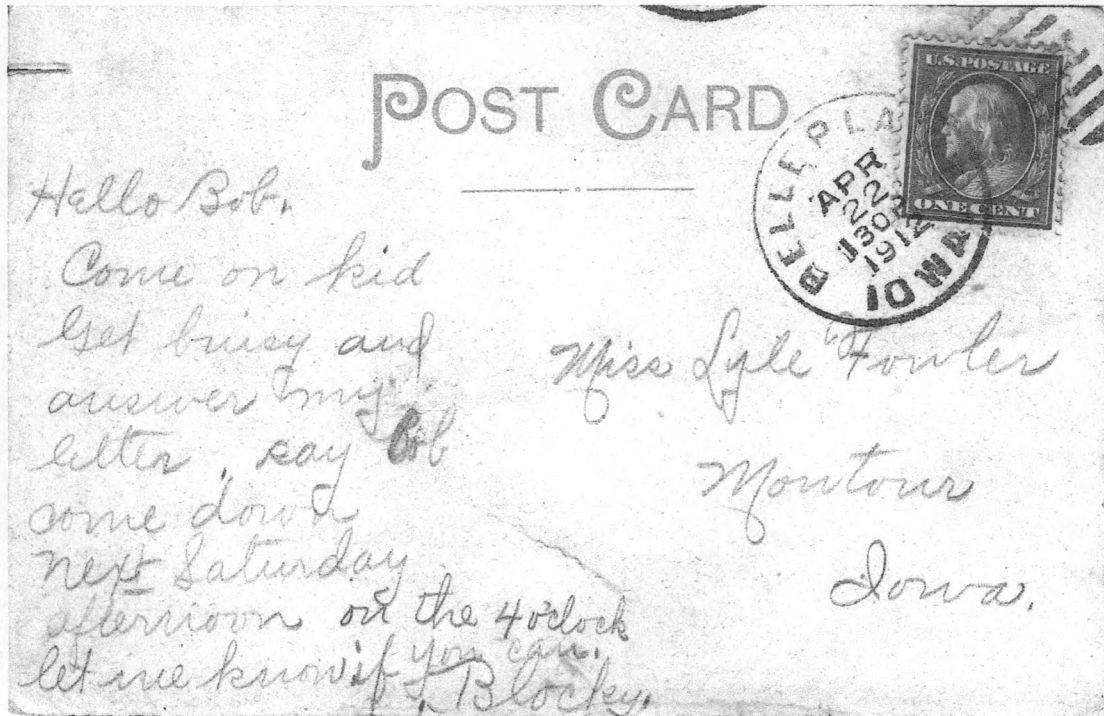 POST CARD
U.S. POSTAGE
ONE CENT
BELLE PLA
IOWA
APR
22
130P
1912
Hello Bob.
Come on kid
Get buisy and
answer my
letter, say Bob
come down
next Saturday
afternoon on the 4 o'clock
let me know if you can.
Blocky.
Miss Lyle Fowler
Montour
Iowa.